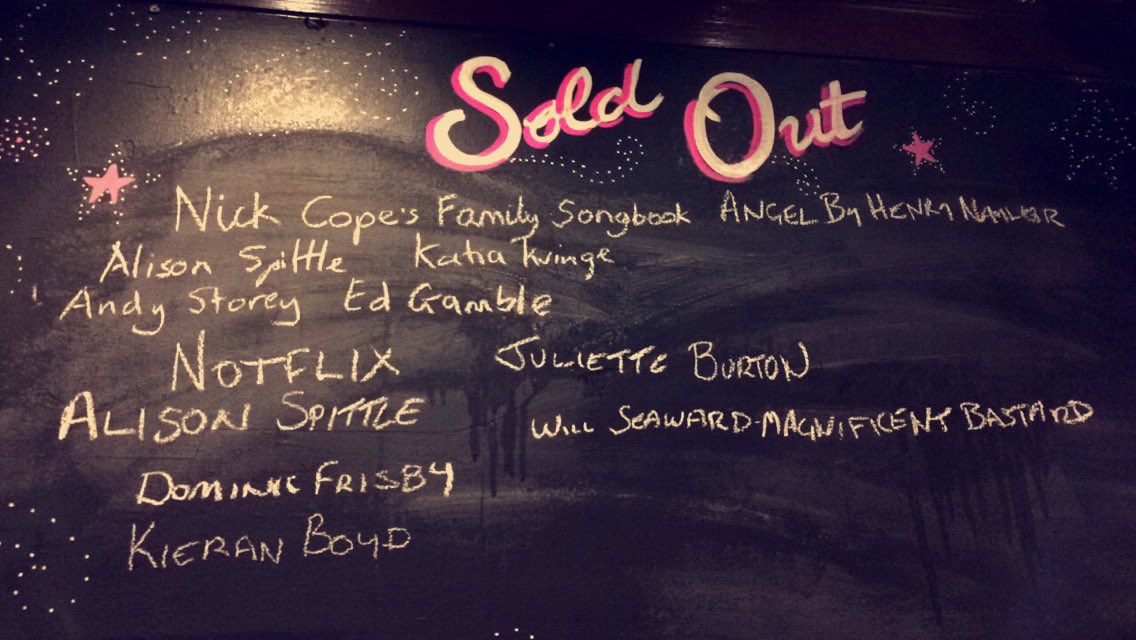 Sold Out
Nick Cope's Family Songbook ANGEL BY HENRY NAYLOR
Alison Spittle Katia Kvinge
Andy Storey Ed Gamble
NOTFLIX JULIETTE BURTON
ALISON SPITTLE WILL SEAWARD-MAGNIFICENT BASTARD
DOMINIC FRISBY
KIERAN BOYD